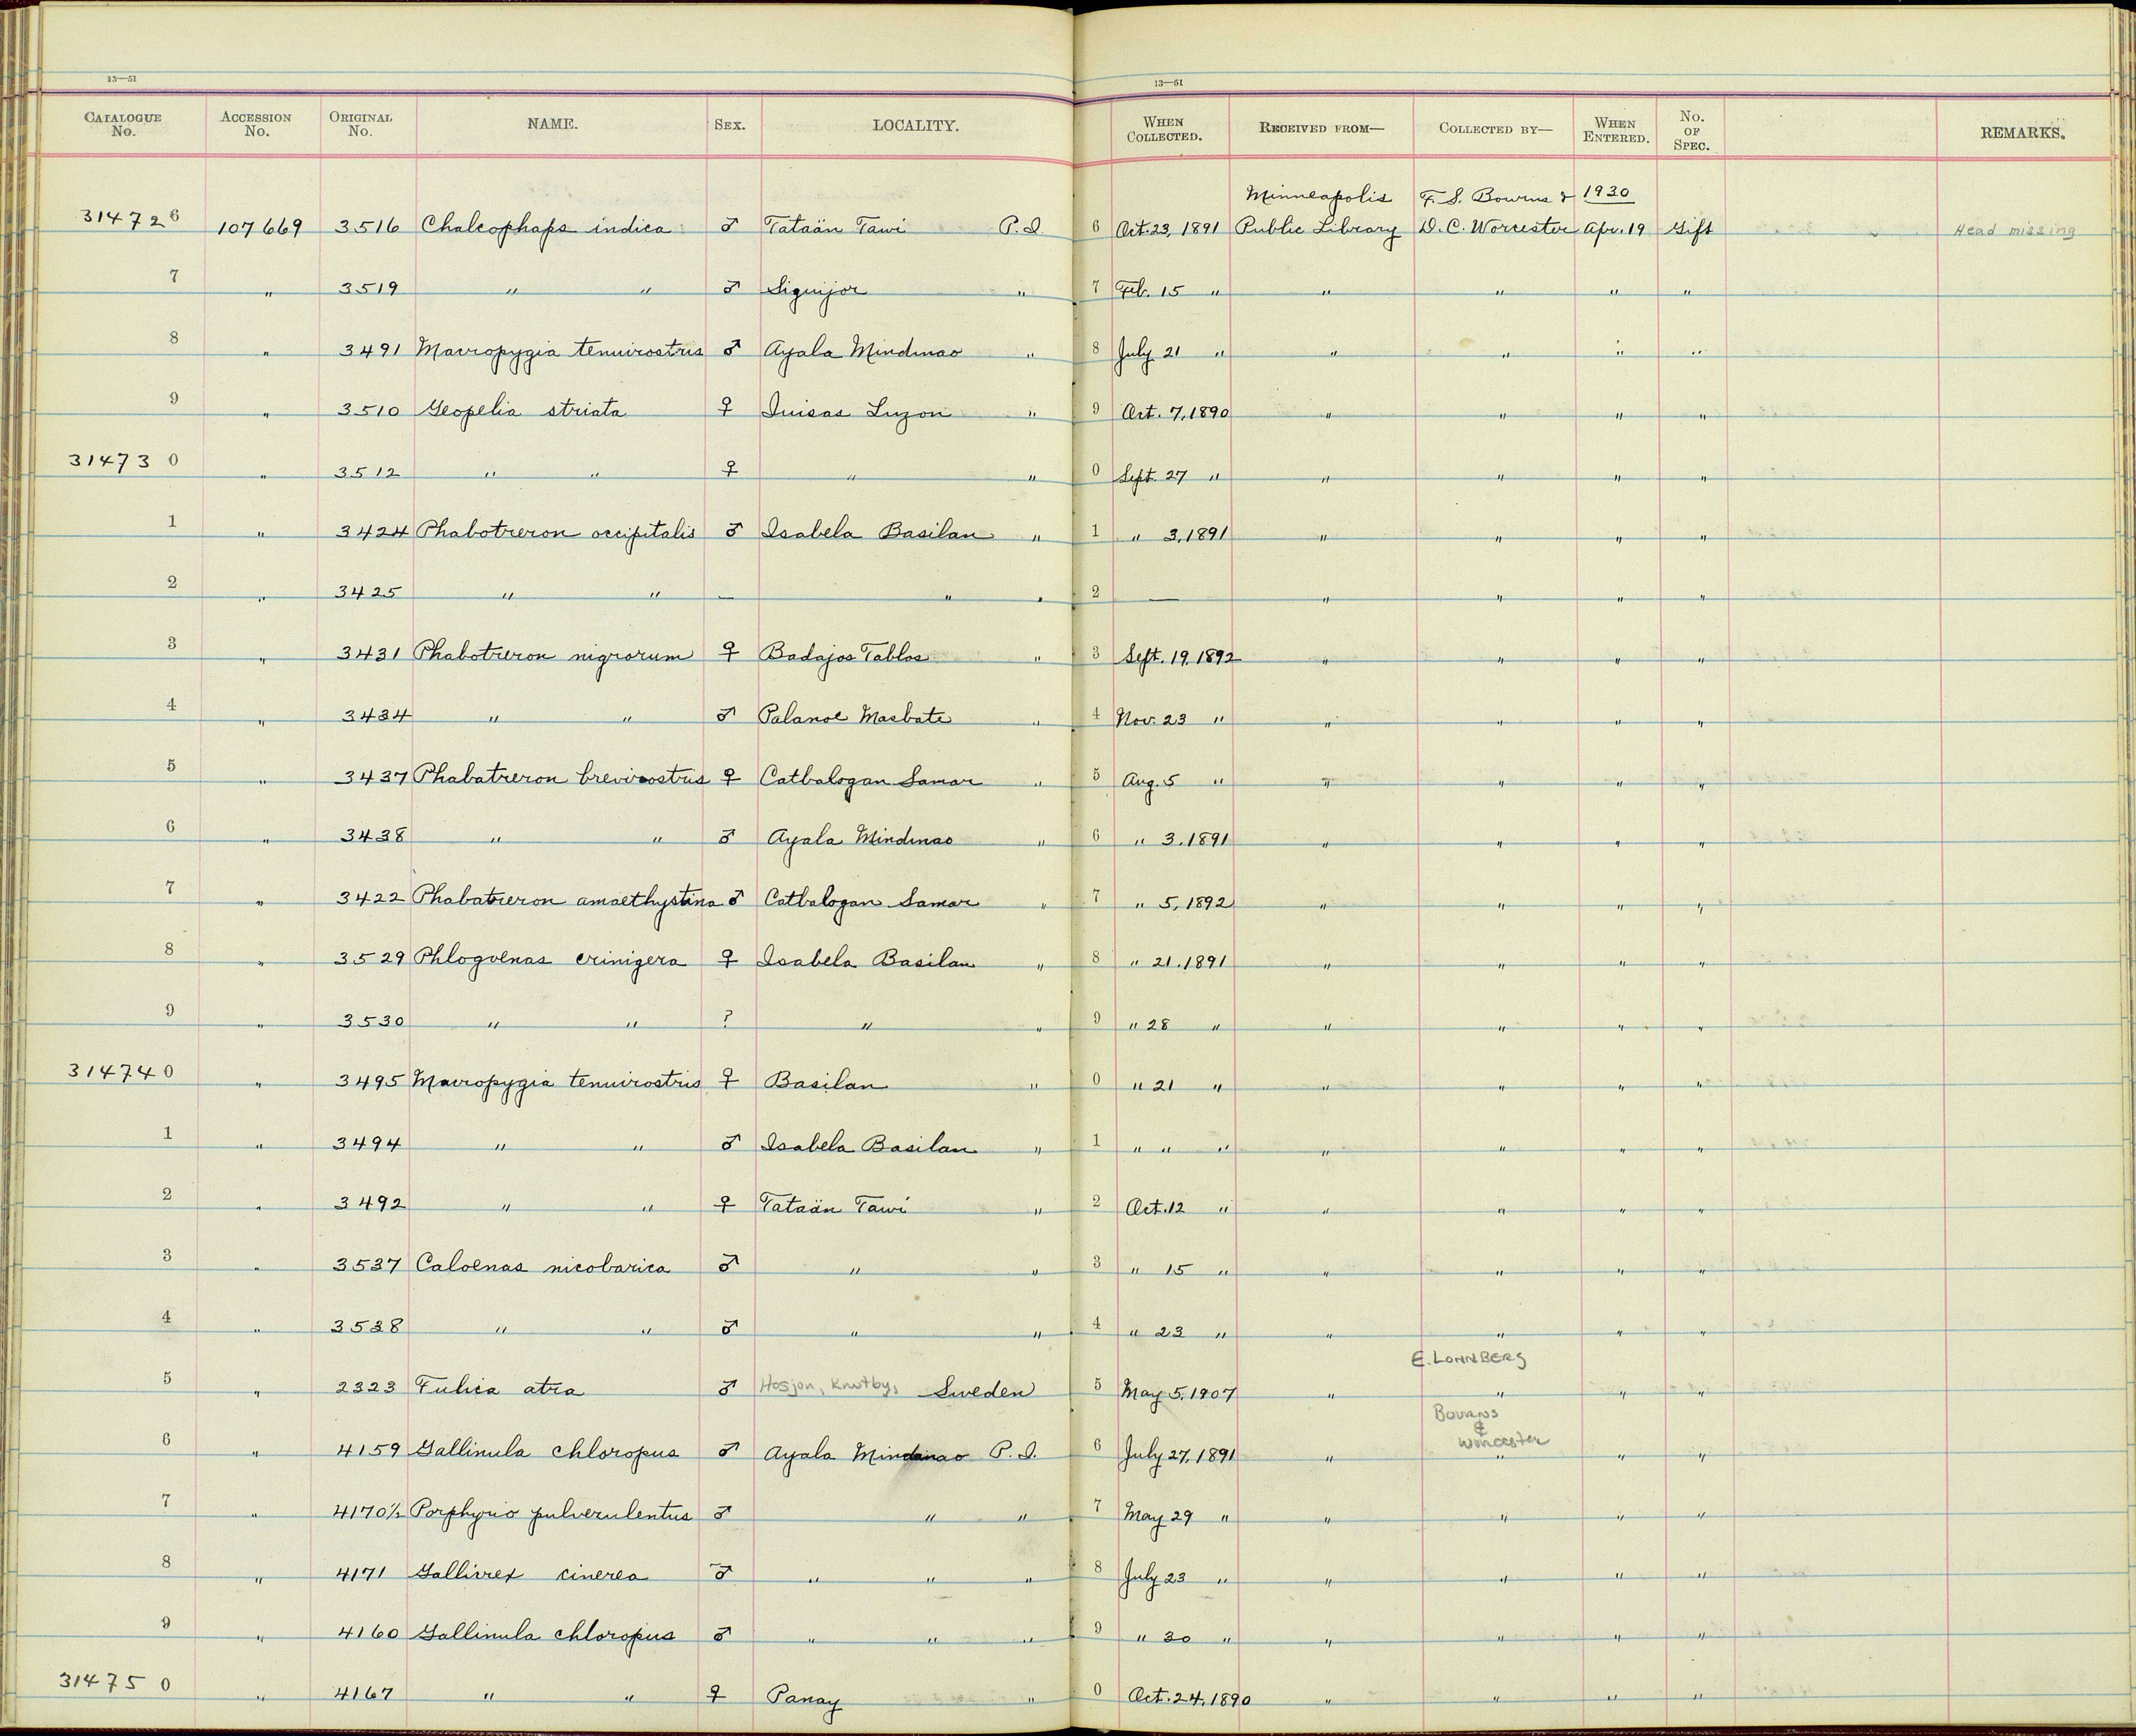 13—51 13—51
CATALOGUE No. ACCESSION No. ORIGINAL No. NAME. SEX. LOCALITY. WHEN COLLECTED. RECEIVED FROM— COLLECTED BY— WHEN ENTERED. No. OF SPEC. REMARKS.
Minneapolis F. S. Bourns & 1930
314726 107669 3516 Chalcophaps indica ♂ Tataän Tawi P.I. 6 Oct. 23, 1891 Public Library D. C. Worcester Apr. 19 Gift Head missing
7 " 3519 " " ♂ Siquijor " 7 Feb. 15 " " " " "
8 " 3491 Macropygia tenuirostris ♂ Ayala Mindinao " 8 July 21 " " " " "
9 " 3510 Geopelia striata ♀ Luzon " 9 Oct. 7, 1890 " " " "
314730 " 3512 " " ♀ " " 0 Sept. 27 " " " " "
1 " 3424 Phabotreron occipitalis ♂ Isabela Basilan " 1 " 3, 1891 " " " "
2 " 3425 " " — " " 2 — " " " "
3 " 3431 Phabotreron nigrorum ♀ Badajos Tablos " 3 Sept. 19, 1892 " " " "
4 " 3434 " " ♂ Palanoc Masbate " 4 Nov. 23 " " " " "
5 " 3437 Phabatreron brevirostris ♀ Catbalogan Samar " 5 Aug. 5 " " " " "
6 " 3438 " " ♂ Ayala Mindinao " 6 " 3, 1891 " " " "
7 " 3422 Phabatreron amaethystina ♂ Catbalogan Samar " 7 " 5, 1892 " " " "
8 " 3529 Phlogoenas crinigera ♀ Isabela Basilan " 8 " 21, 1891 " " " "
9 " 3530 " " ? " " 9 " 28 " " " " "
314740 " 3495 Macropygia tenuirostris ♀ Basilan " 0 " 21 " " " " "
1 " 3494 " " ♂ Isabela Basilan " 1 " " " " " " "
2 " 3492 " " ♀ Tataän Tawi " 2 Oct. 12 " " " " "
3 " 3537 Caloenas nicobarica ♂ " " 3 " 15 " " " " "
4 " 3538 " " ♂ " " 4 " 23 " " " " "
E. LONNBERG
5 " 2323 Fulica atra ♂ Hosjon, Knutby, Sweden 5 May 5, 1907 " " " "
Bourns
&
Worcester
6 " 4159 Gallinula chloropus ♂ Ayala Mindanao P.I. 6 July 27, 1891 " " " "
7 " 4170½ Porphyrio pulverulentus ♂ " " 7 May 29 " " " " "
8 " 4171 Gallirex cinerea ♂ " " " 8 July 23 " " " " "
9 " 4160 Gallinula chloropus ♂ " " " 9 " 30 " " " " "
314750 " 4167 " " ♀ Panay " 0 Oct. 24, 1890 " " " "